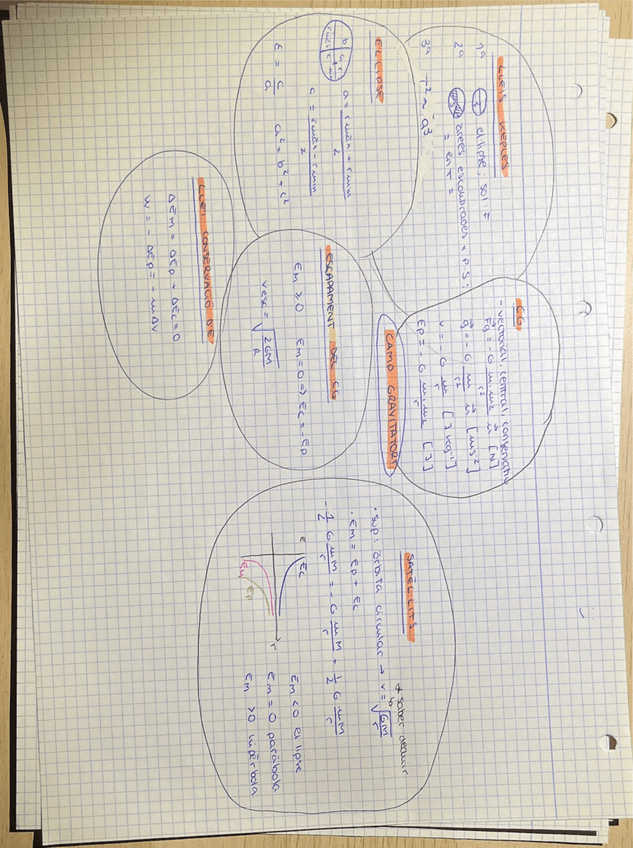 LLEIS KEPLER
1ª el·lipse: sol: F
2ª àrees escombrades x P.S:
= en T =
3ª T² ~ a3
EL·LIPSE
a = rmàx + rmin / 2
c = rmàx - rmin / 2
E = c/a a² = b² + c²
CG
- vectorial, central, conservatiu
Fg = - G m1m2/r² u [N]
g = - G m/r² u [ms-2]
V = - G m/r [J kg-1]
Ep = - G m1m2/r [J]
CAMP GRAVITATORI
ESCAPAMENT DEL CG
Em ≥ 0 Em = 0 => Ec = - Ep
vesc = √2GM/R
LLEI CONSERVACIÓ DE
ΔEm = ΔEp + ΔEc = 0
W = - ΔEp = - mΔV
SATÈL·LITS
* saber deduir
· sup: òrbita circular → v = √GM/r
· Em = Ep + Ec
- 1/2 G mM/r = - G mM/r + 1/2 G mM/r
E
Ec
r
Em
Ep
Em < 0 el·lipse
Em = 0 paràbola
Em > 0 hipèrbola